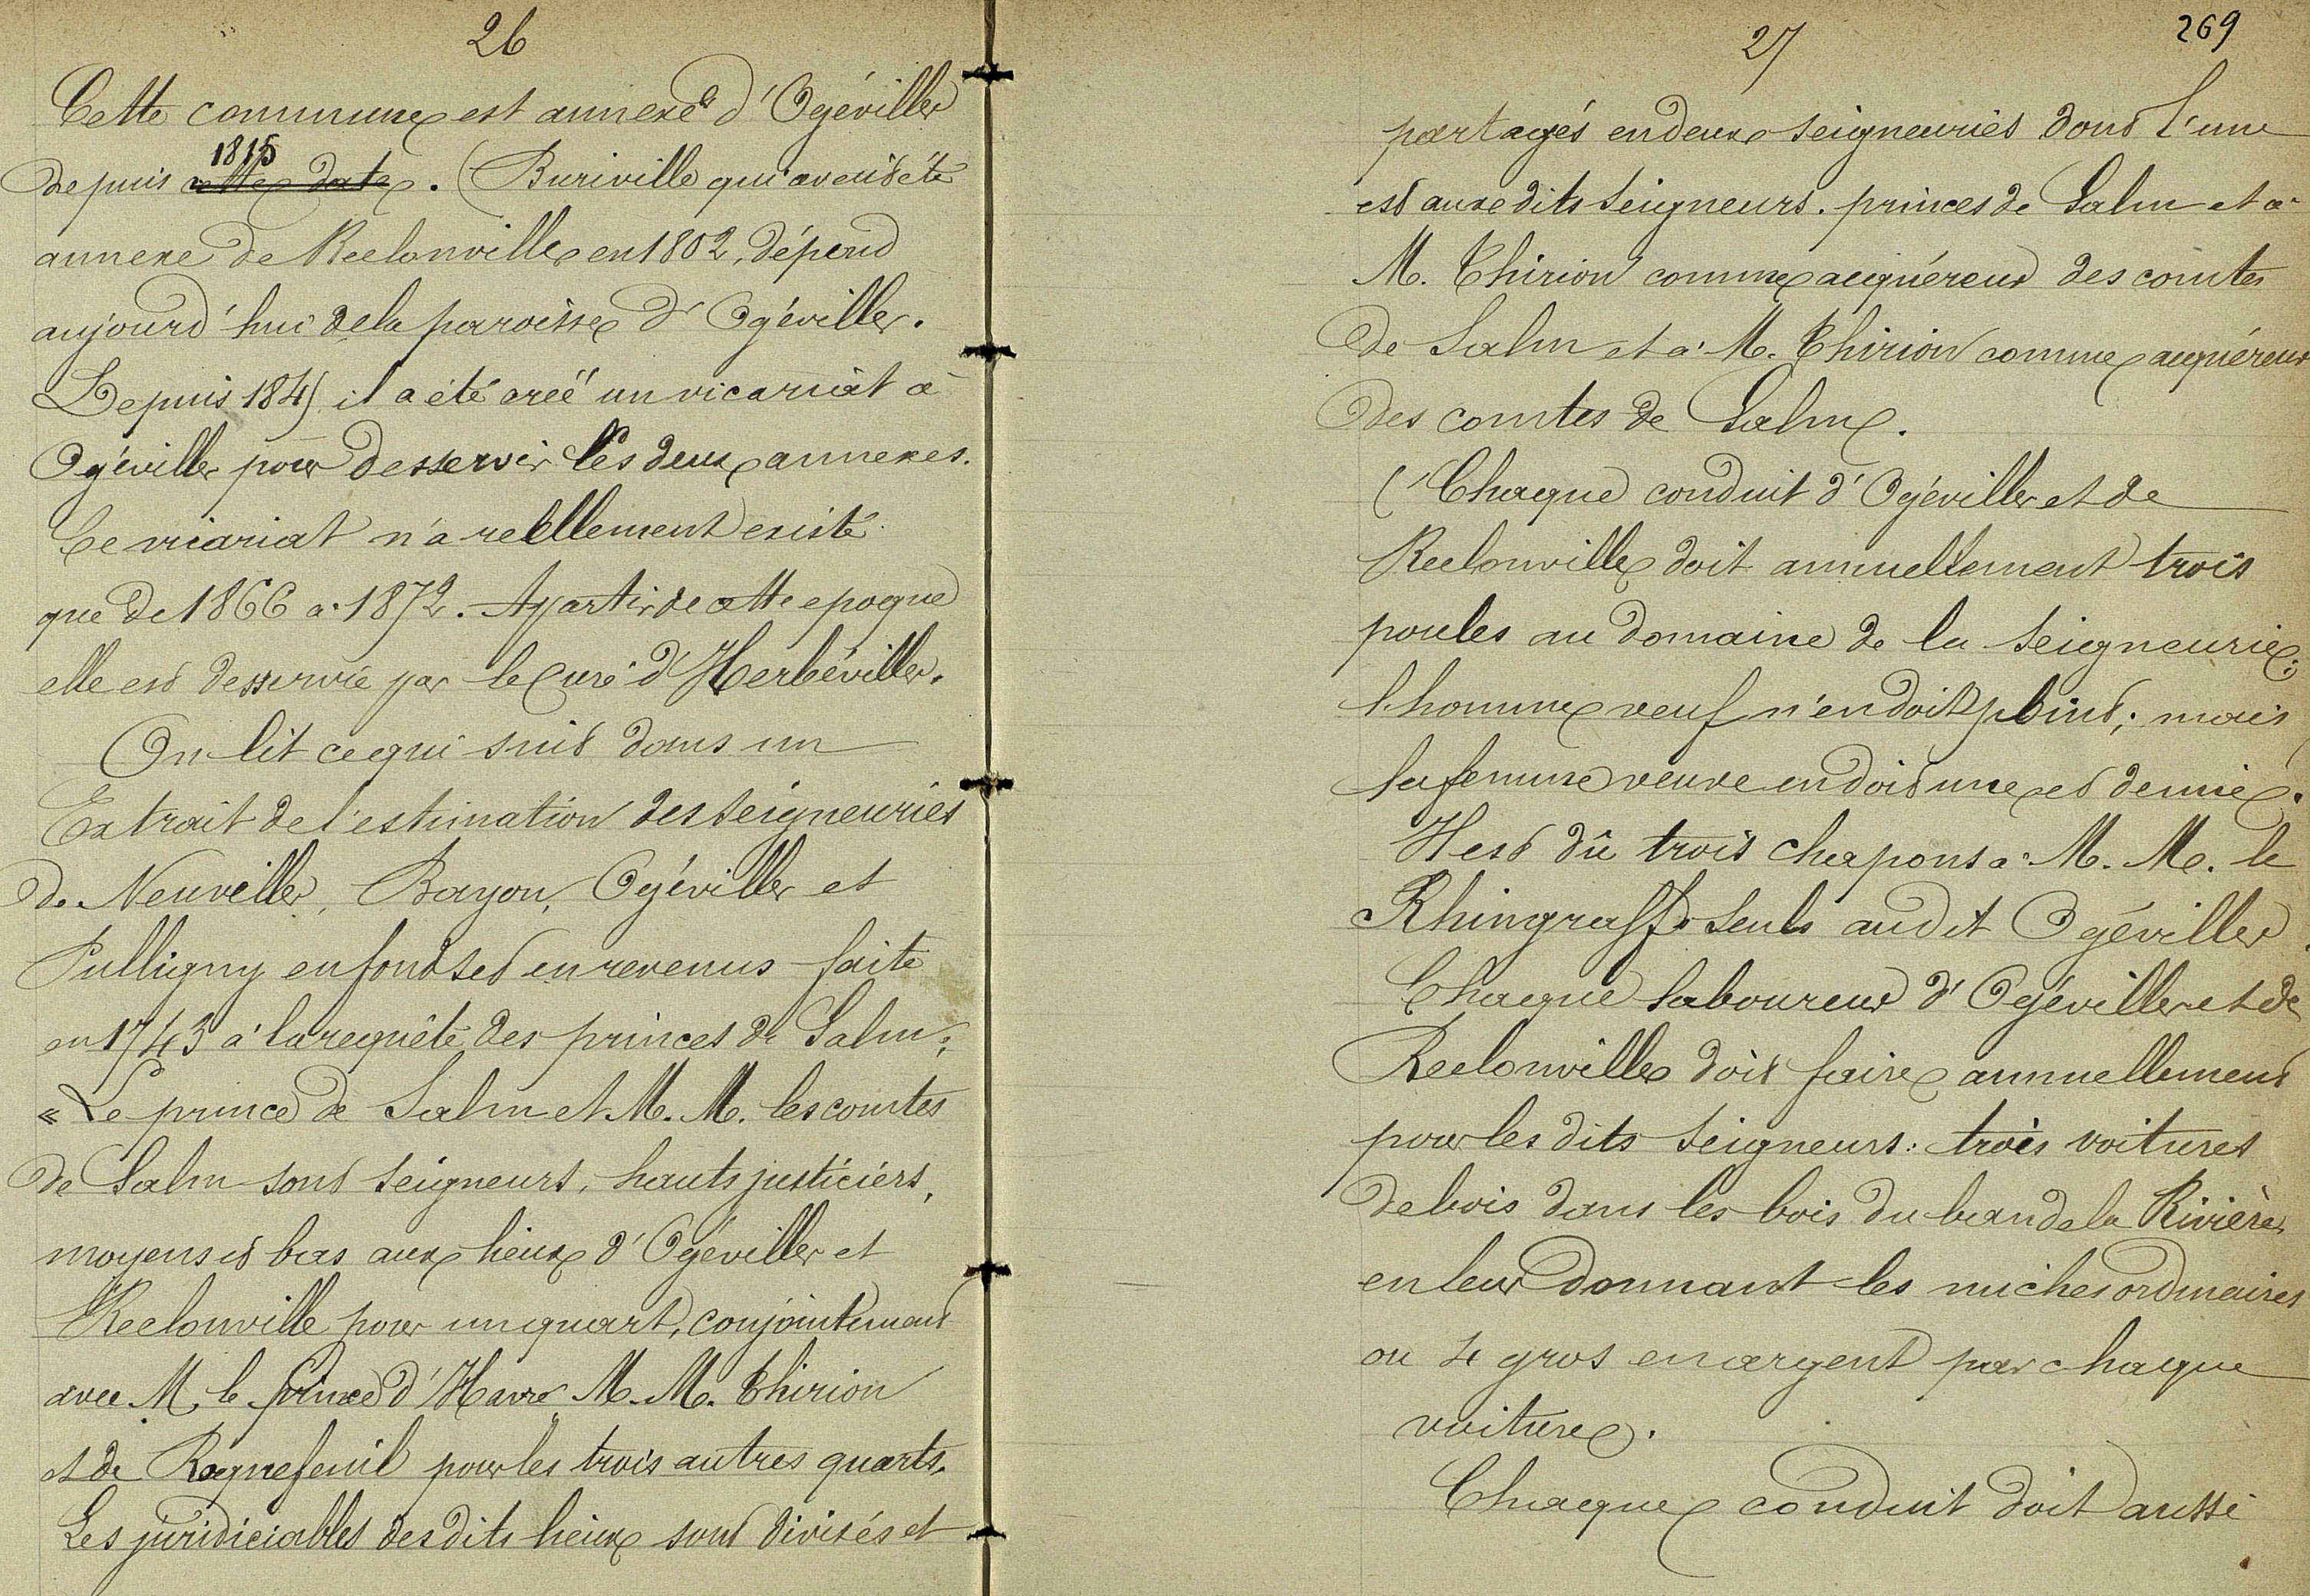 26
Cette commune est annexe d'Ogéviller
1815
depuis cette date. (Buriville qui avait été
annexe de Reclonville en 1802, dépend
aujourd'hui de la paroisse d'Ogéviller.
Depuis 1847 il a été créé un vicariat à
Ogéviller pour desservir les deux annexes.
Ce vicariat n'a réellement existé
que de 1866 à 1872. A partir de cette epoque
elle est desservie par le curé d'Herbéviller.
On lit ce qui suit dans un
Extrait de l'estimation des seigneuries
de Neuviller, Bayon, Ogéviller et
Pulligny en fonds et en revenus faite
en 1743 à la requête des princes de Salm:
« Le prince de Salm et M. M. les comtes
de Salm sont seigneurs, hauts justiciers,
moyens et bas aux lieux d'Ogéviller et
Reclonville pour un quart, conjointement
avec M. le prince d'Havré M. M. Thirion
et de Roquefeuil pour les trois autres quarts.
Les juridiciables des dits lieux sont divisés et
27
269
partagés en deux seigneuries dont l'une
est aux dits seigneurs. princes de Salm et à
M. Thirion comme acquéreur des comtes
de Salm et à M. Thirion comme acquéreur
des comtes de Salm.
( Chaque conduit d'Ogéviller et de
Reclonville doit annuellement trois
poules au domaine de la seigneurie;
l'homme veuf n'en doit point; mais
la femme veuve en doit une et demie.
Il est dû trois chapons à M. M. le
Rhingraff seuls audit Ogéviller.
Chaque laboureur d'Ogéviller et de
Reclonville doit faire annuellement
pour les dits seigneurs: trois voitures
de bois dans les bois du ban de la Rivière,
en leur donnant les miches ordinaires
ou 4 gros en argent par chaque
voiture.
Chaque conduit doit aussi